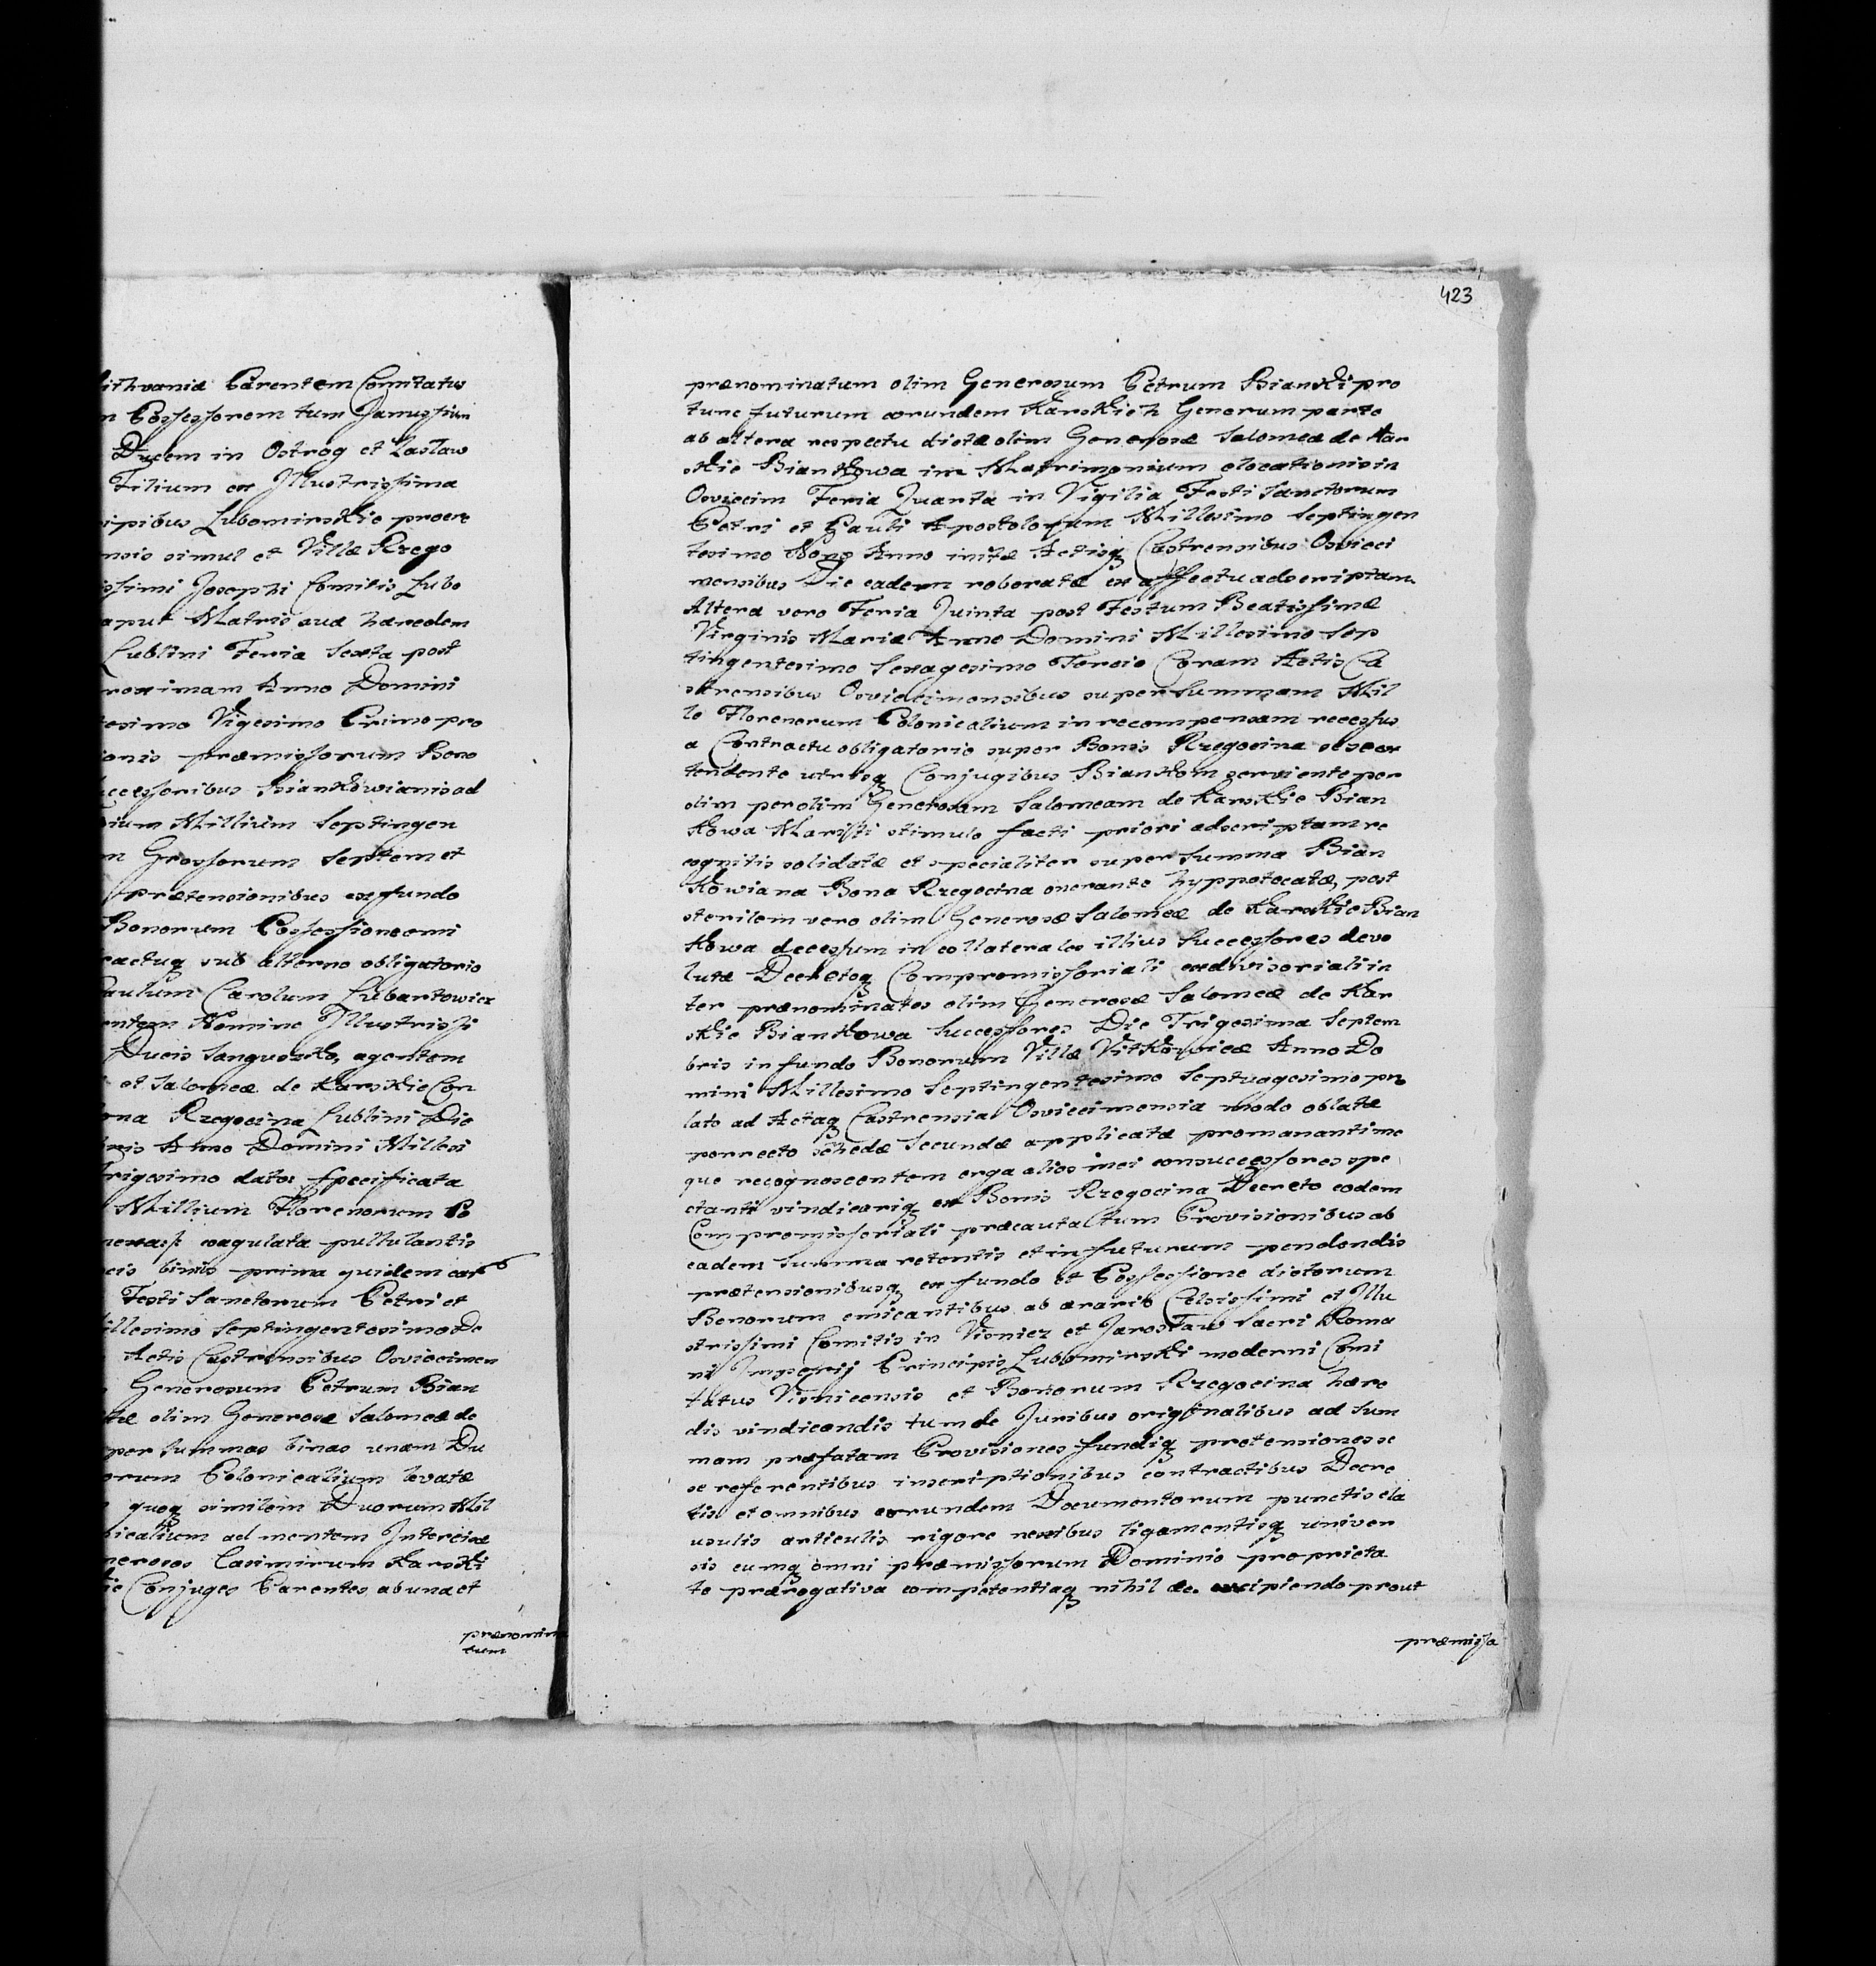 ithvaniæ Parentem Comitatus
n Possessorem tum Janussium
Ducem in Ostrog et Zaslaw
Filium ex Illustrissima
ipibus Lubomirskie procre
nsis simul et Villæ Rzego
ssimi Josephi Comitis Lubo
aput Matris suæ hæredem
Lublini Feria Sexta post
roximam Anno Domini
esimo Vigesimo Primo pro
ionis præmissorum Bono
ccessoribus Biankowianis ad
ium Millium Septingen
n Grossorum Septem et
prætensionibus ex fundo
Bonorum Possessione omi
ractuq sub alterno obligatorio
aulum Carolum Lubartowicz
entem Nomine Illustrissi
Ducis Sanguszko, agentem
et Salomeæ de Karskie Con
ona Rzegocina Lublini Die
bris Anno Domini Millesi
rigesimo datos specificata
Millium Florenorum Po
coagulata pullulantis
cis binis prima quidem
Festi Sanctorum Petri et
illesimo Septingentesimo De
Actis Castrensibus Osviecimen
Generosum Petrum Bian
tæ olim Generosæ Salomeæ de
per Summas binas unam Du
orum Polonicalium levatæ
quoq similem Duorum Mil
icalium ad mentem Intercisæ
nerosos Casimirum Karski
ie Conjuges Parentes ab una et
prænomina
tum
423
prænominatum olim Generosum Petrum Bianski pro
tunc futurum eorundem Karskich Generum parte
ab altera respectu dictæ olim Generosæ Salomeæ de Kar
skie Biankowa in Matrimonium elocationis in
Osviecim Feria Quarta in Vigilia Festi Sanctorum
Petri et Pauli Apostolorum Millesimo Septingen
tesimo Nono Anno initæ Actisq Castrensibus Osvieci
mensibus Die eadem roboratæ ex affectu adscriptam
Altera vero Feria Quinta post Festum Beatissimæ
Virginis Mariæ Anno Domini Millesimo Sep
tingentesimo Sexagesimo Tercio Coram Actis Ca
strensibus Osviecimensibus super Summam Mil
le Florenorum Polonicalium in recompensam recessus
a Contractu obligatorio super Bonis Rzegocina sese ex
tendente utrisq Conjugibus Biankom serviente per
olim per olim Generosam Salomeam de Karskie Bian
kowa Mariti stimulo facti priori adscriptam re
cognitis solidatæ et specialiter super Summa Bian
kowiana Bona Rzegocina onerante hyppotecatæ, post
sterilem vero olim Generosæ Salomeæ de Karskie Bian
kowa decessum in collaterales illius Successores devo
lutæ Decretoq Compromissoriali exdivisoriali in
ter prænominatos olim Generosæ Salomeæ de Kar
skie Biankowa Successores Die Trigesima Septem
bris in fundo Bonorum Villæ Vitkowicæ Anno Do
mini Millesimo Septingentesimo Septuagesimo pro
lato ad Actaq Castrensia Osviecimensia modo oblatæ
porrecto Schedæ Secundæ applicatæ promananti me
que recognoscentem erga alios mei consuccessores spe
ctanti vindicariq ex Bonis Rzegocina Decreto eodem
Compromissoriali præcauta tum Provisionibus ab
eadem Summa retentis et in futurum pendendis
prætensionibusq ex fundo et Possessione dictorum
Bonorum emicantibus ab ærario Celsissimi et Illu
strissimi Comitis in Visnicz et Jarosław Sacri Roma
ni Imperij Principis Lubomirski moderni Comi
tatus Visnicensis et Bonorum Rzegocina hære
dis vindicendis tum de Juribus originalibus ad Sum
mam præfatam Provisiones fundiq pretensiones se
se referentibus inscriptionibus contractibus Decre
tis et omnibus eorundem Documentorum punctis cla
usulis articulis rigore nexibus ligamentisq univer
sis cumq omni præmissorum Dominio proprieta
te prærogativa competentiaq nihil de. excipiendo prout
præmissa